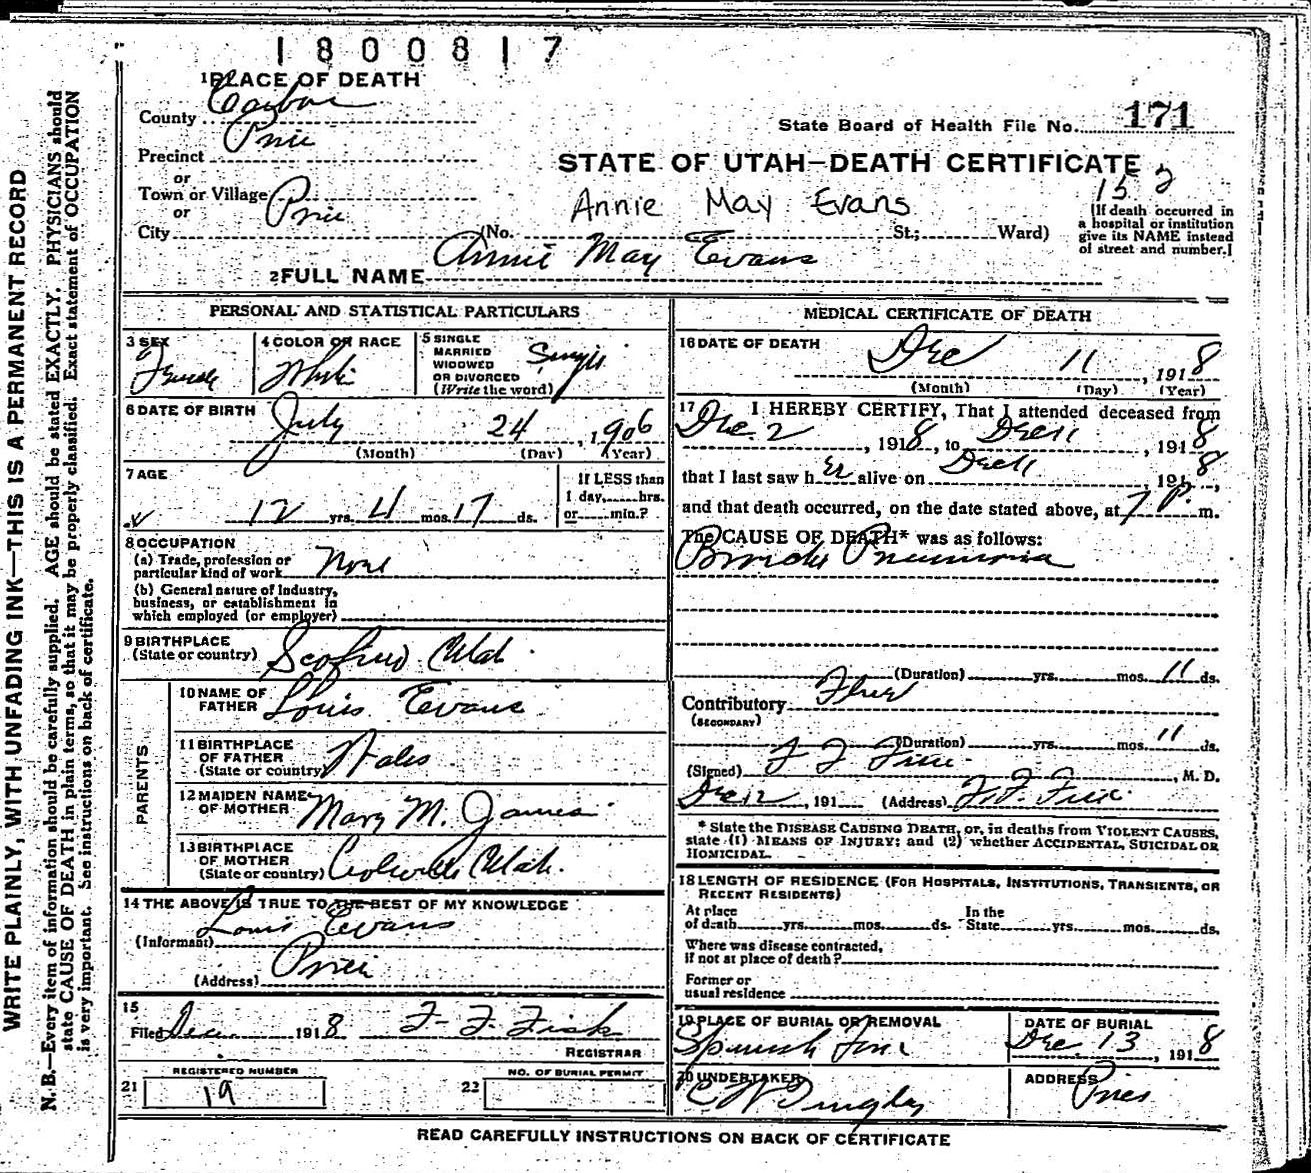 1800817
1 PLACE OF DEATH
County Carbon
State Board of Health File No. 171
Precinct Price
STATE OF UTAH—DEATH CERTIFICATE
or
Town or Village Price
or
Annie May Evans
15 2
City (No. St.; Ward)
(If death occurred in
a hospital or institution
give its NAME instead
of street and number.)
2 FULL NAME Annie May Evans
PERSONAL AND STATISTICAL PARTICULARS
3 SEX
Female
4 COLOR OR RACE
White
5 SINGLE
MARRIED
WIDOWED
OR DIVORCED
(Write the word)
Single
6 DATE OF BIRTH
July 24, 1906
(Month) (Day) (Year)
7 AGE
12 yrs. 4 mos. 17 ds.
If LESS than
1 day, hrs.
or min.?
8 OCCUPATION
(a) Trade, profession or
particular kind of work None
(b) General nature of Industry,
business, or establishment in
which employed (or employer)
9 BIRTHPLACE
(State or country) Scofield Utah
PARENTS
10 NAME OF
FATHER Louis Evans
11 BIRTHPLACE
OF FATHER
(State or country) Wales
12 MAIDEN NAME
OF MOTHER Mary M. James
13 BIRTHPLACE
OF MOTHER
(State or country) Utah.
14 THE ABOVE IS TRUE TO THE BEST OF MY KNOWLEDGE
(Informant) Louis Evans
(Address) Price
15
Filed Dec 1918 F. F. Fisk
REGISTRAR
REGISTERED NUMBER
21 19
NO. OF BURIAL PERMIT
22
MEDICAL CERTIFICATE OF DEATH
16 DATE OF DEATH
Dec 11, 1918
(Month) (Day) (Year)
17 I HEREBY CERTIFY, That I attended deceased from
Dec. 2, 1918, to Dec 11, 1918
that I last saw her alive on Dec 11, 1918,
and that death occurred, on the date stated above, at 7 P. m.
The CAUSE OF DEATH* was as follows:
Broncho Pneumonia
(Duration) yrs. mos. 11 ds.
Contributory Flu
(SECONDARY)
(Duration) yrs. mos. 11 ds.
(Signed) F F Fisk, M. D.
Dec 12, 191 (Address) F. F. Fisk.
* State the DISEASE CAUSING DEATH, or, in deaths from VIOLENT CAUSES,
state (1) MEANS OF INJURY; and (2) whether ACCIDENTAL, SUICIDAL OR
HOMICIDAL.
18 LENGTH OF RESIDENCE (FOR HOSPITALS, INSTITUTIONS, TRANSIENTS, OR
RECENT RESIDENTS)
At place
of death yrs. mos. ds.
In the
State yrs. mos. ds.
Where was disease contracted,
if not at place of death?
Former or
usual residence
19 PLACE OF BURIAL OR REMOVAL
Spanish Fork
DATE OF BURIAL
Dec. 13, 1918
20 UNDERTAKER
C W
ADDRESS
Price
READ CAREFULLY INSTRUCTIONS ON BACK OF CERTIFICATE
WRITE PLAINLY, WITH UNFADING INK—THIS IS A PERMANENT RECORD
N. B.—Every item of information should be carefully supplied. AGE should be stated EXACTLY. PHYSICIANS should
state CAUSE OF DEATH in plain terms, so that it may be properly classified. Exact statement of OCCUPATION
is very important. See instructions on back of certificate.